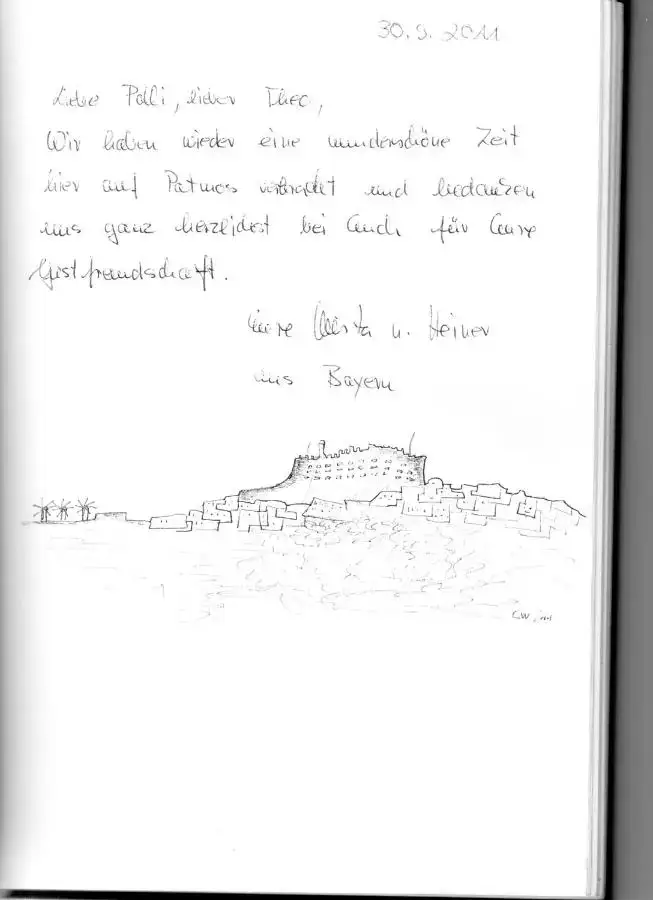 30.9.2011
Liebe Polli, lieber Theo,
Wir haben wieder eine wunderschöne Zeit
hier auf Patmos verbracht und bedanken
uns ganz herzlichst bei Euch für Eure
Gastfreundschaft.
Eure Christa u. Heiner
aus Bayern